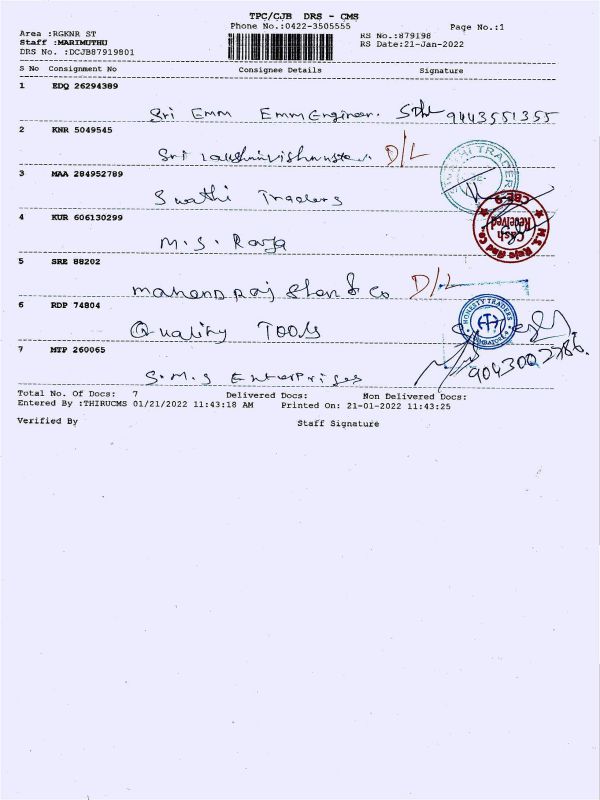 TPC/CJB DRS - CMS
Phone No.:0422-3505555 Page No.:1
Area :RGKNR ST
Staff :MARIMUTHU
DRS No. :DCJB87919801
RS No.:879198
RS Date:21-Jan-2022
S No Consignment No Consignee Details Signature
1 EDQ 26294389
Sri Emm Emm Engineer. 9443551355
2 KNR 5049545
Sri D/L
3 MAA 284952789
Swathi Traders
4 KUR 606130299
M.S. Raja
5 SRE 88202
& Co D/L
6 RDP 74804
Quality Tools
7 MTP 260065
S.M.S Enterprises
HONESTY TRADERS
Cash
Received
Total No. Of Docs: 7 Delivered Docs: Non Delivered Docs:
Entered By :THIRUCMS 01/21/2022 11:43:18 AM Printed On: 21-01-2022 11:43:25
Verified By Staff Signature